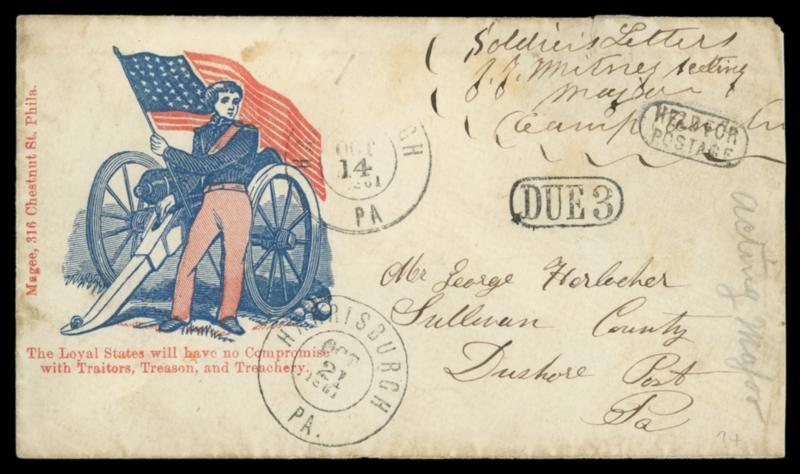 Soldier's Letters
J. J. Whitney acting
Major
Camp
HELD FOR
POSTAGE
DUE 3
Magee, 316 Chestnut St. Phila.
OCT
14
1861
PA
Mr George Horlocher
Sullivan County
Dushore Post
Pa
The Loyal States will have no Compromise
with Traitors, Treason, and Treachery.
HARRISBURGH
OCT
21
1861
PA.
acting major
24